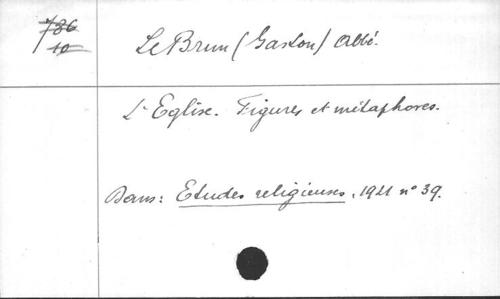 786
10
Le Brun (Gaston) Abbé.
L'Eglise. Figures et métaphores.
Dans: Etudes religieuses, 1921 n° 39.